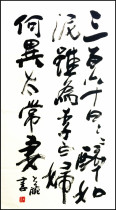 三百六十日々々醉如
泥雖為李白婦
何異太常妻
書